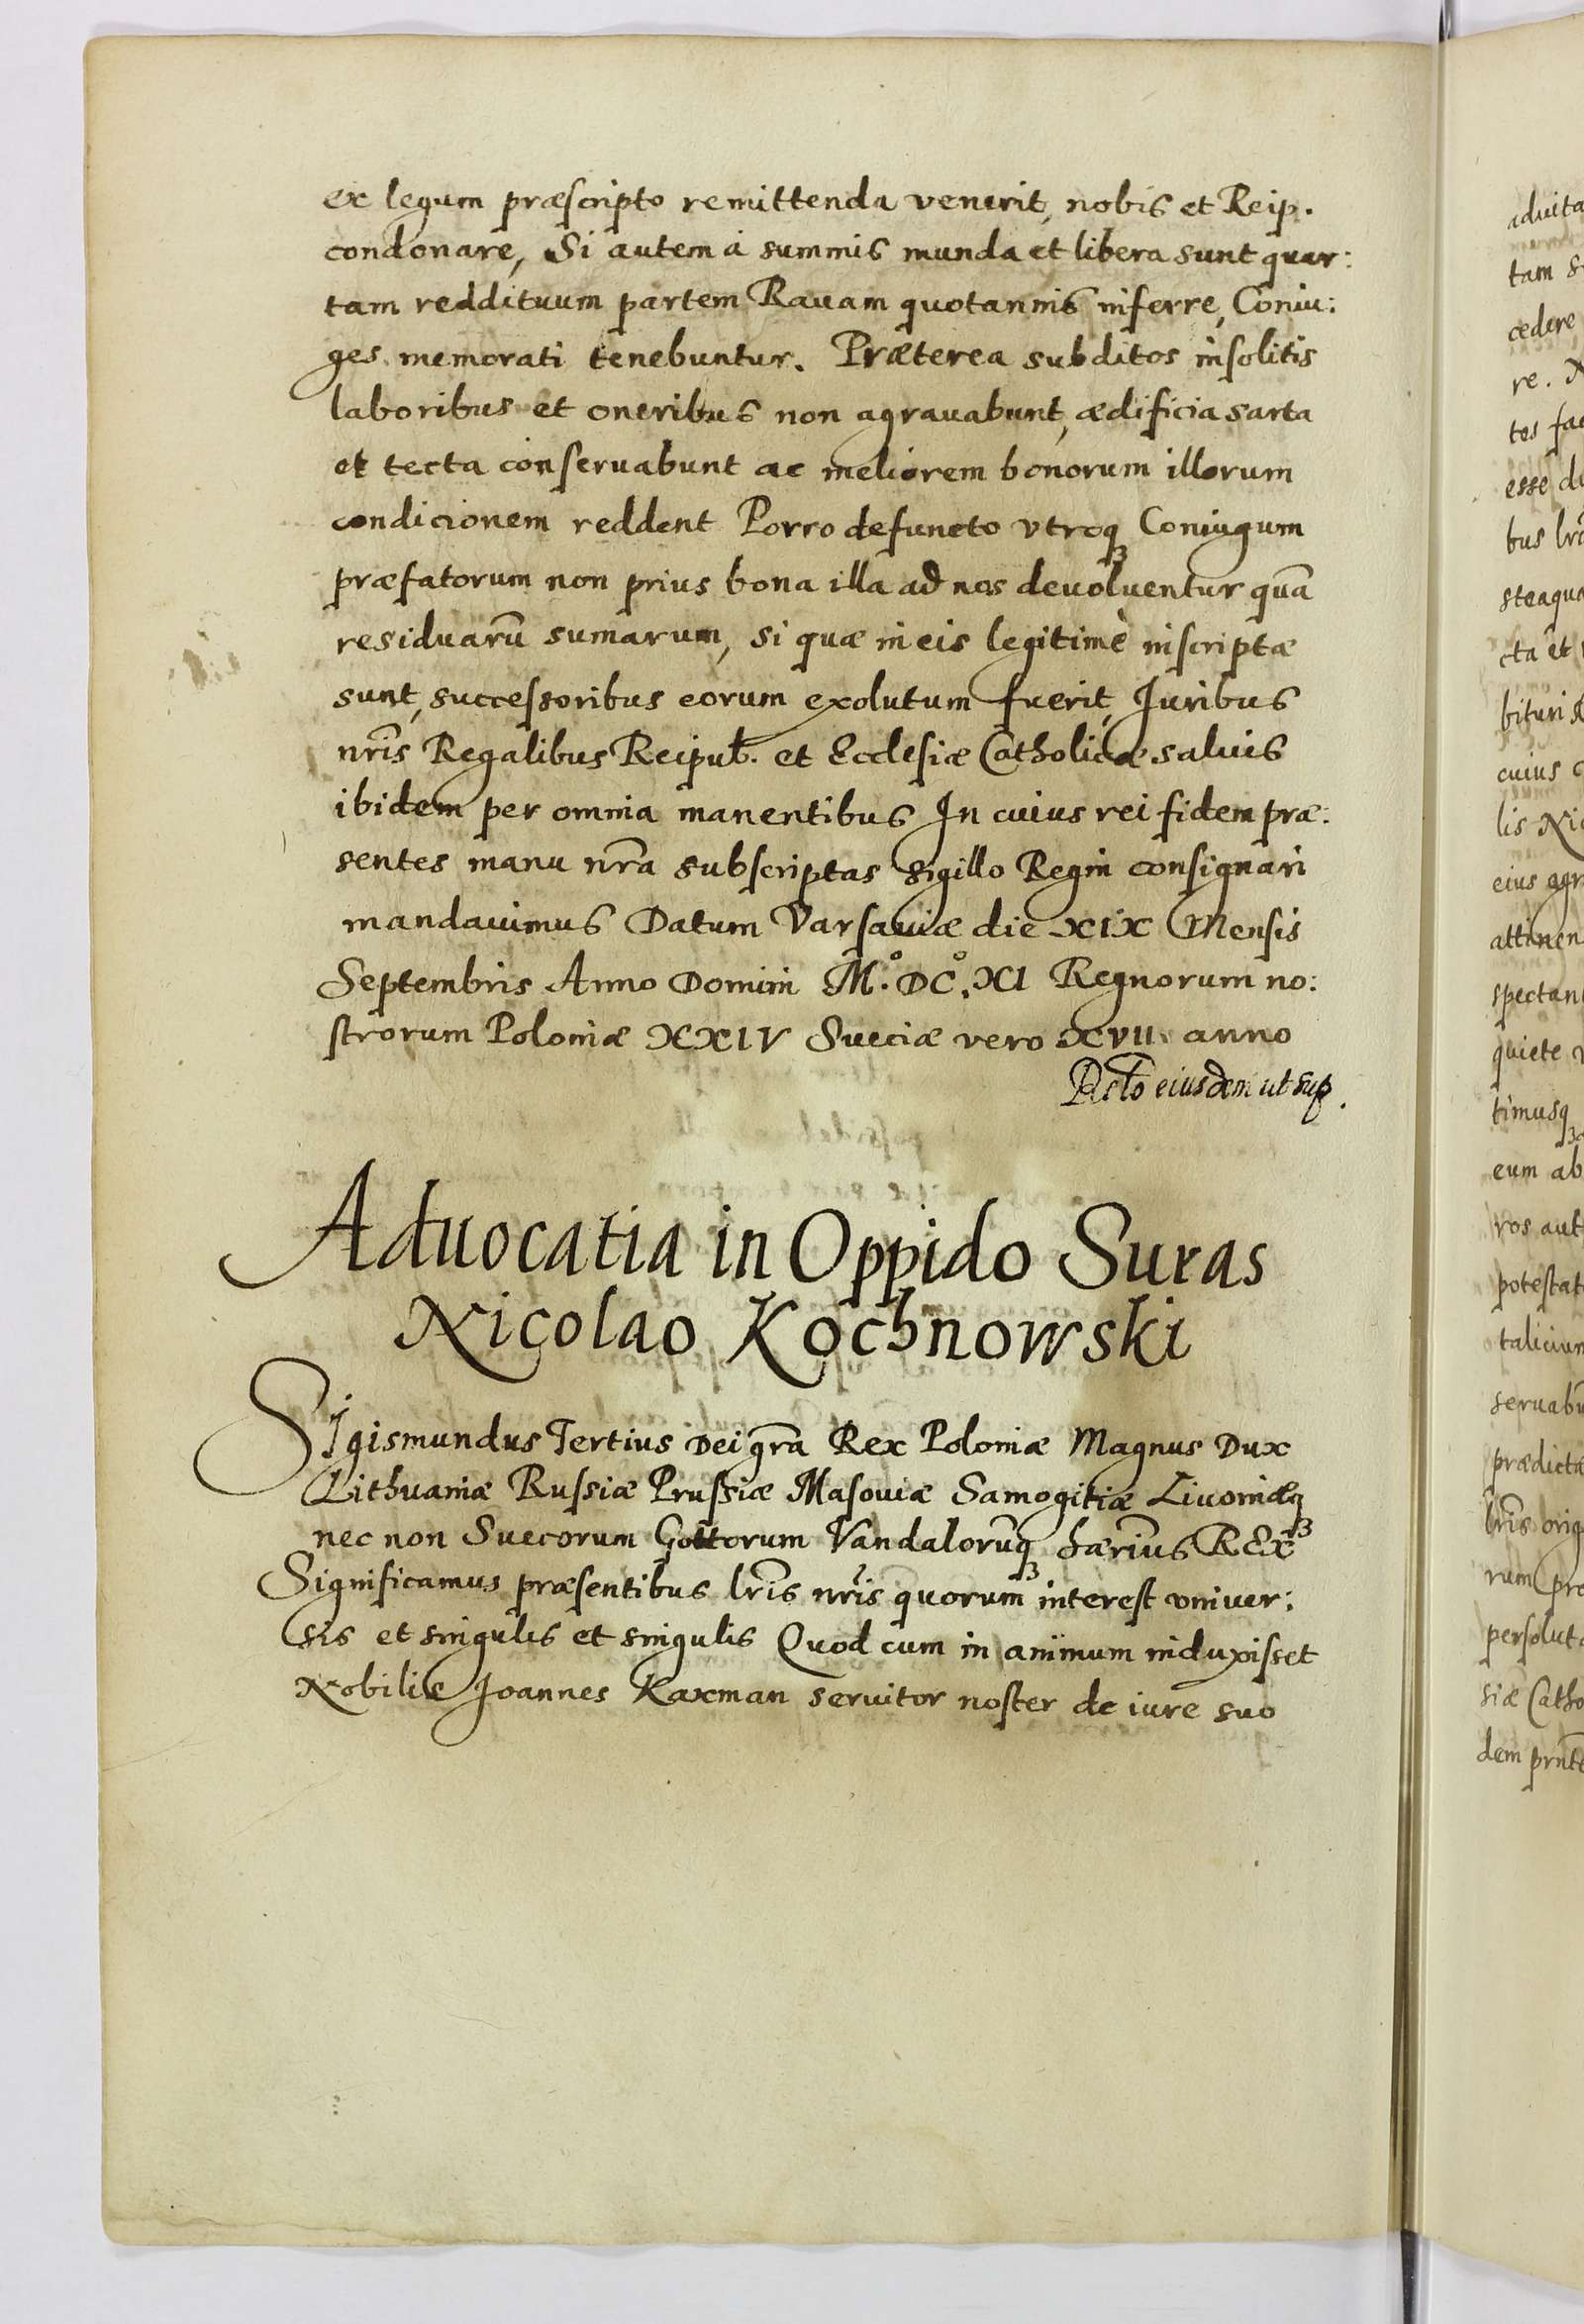 ex legum præscripto remittenda venerit, nobis et Reip.
condonare, Si autem à summis munda et libera sunt quar:
tam reddituum partem Rauam quotannis inferre, Coniu:
ges memorati tenebuntur. Præterea subditos insolitis
laboribus et oneribus non agrauabunt, ædificia sarta
et tecta conseruabunt ac meliorem bonorum illorum
condicionem reddent Porro defuncto vtroqꝫ Coniugum
præfatorum non prius bona illa ad nos devoluentur quā
residuarū sumarum, si quæ in eis legitimè inscriptæ
sunt, successoribus eorum exolutum fuerit, Iuribus
nr̃is Regalibus Reipub. et Ecclesiæ Catholicæ saluis
ibidem per omnia manentibus In cuius rei fidem præ:
sentes manu nr̃a subscriptas sigillo Regni consignari
mandauimus Datum Varsauiæ die XIX Mensis
Septembris Anno Domini M.° DC.° XI Regnorum no:
strorum Poloniæ XXIV Sueciæ vero XVII anno
eiusdem ut sup.
Aduocatia in Oppido Suras
Nicolao Kochnowski
Sigismundus Tertius Dei gr̃a Rex Poloniæ Magnus Dux
Lithvaniæ Russiæ Prussiæ Masouiæ Samogitiæ Liuoniæqꝫ
nec non Suecorum Gottorum Vandalorūqꝫ hærius REX
Significamus præsentibus lr̃is nr̃is quorum interest vniuer:
sis et singulis et singulis Quod cum in animum induxisset
Nobilis Joannes Kaxman seruitor noster de iure suo
aduita
tam s
cedere
re. N
tes fac
esse di
bus lrā
steaqua
cta et
bituri
cuius
lis Nic
eius agr
attinen
spectant
quiete
timusqꝫ
eum ab
ros aut
potestat
talicium
seruabū
prædicta
lr̃is orig
rum pre
persoluta
siæ Catho
dem prnte